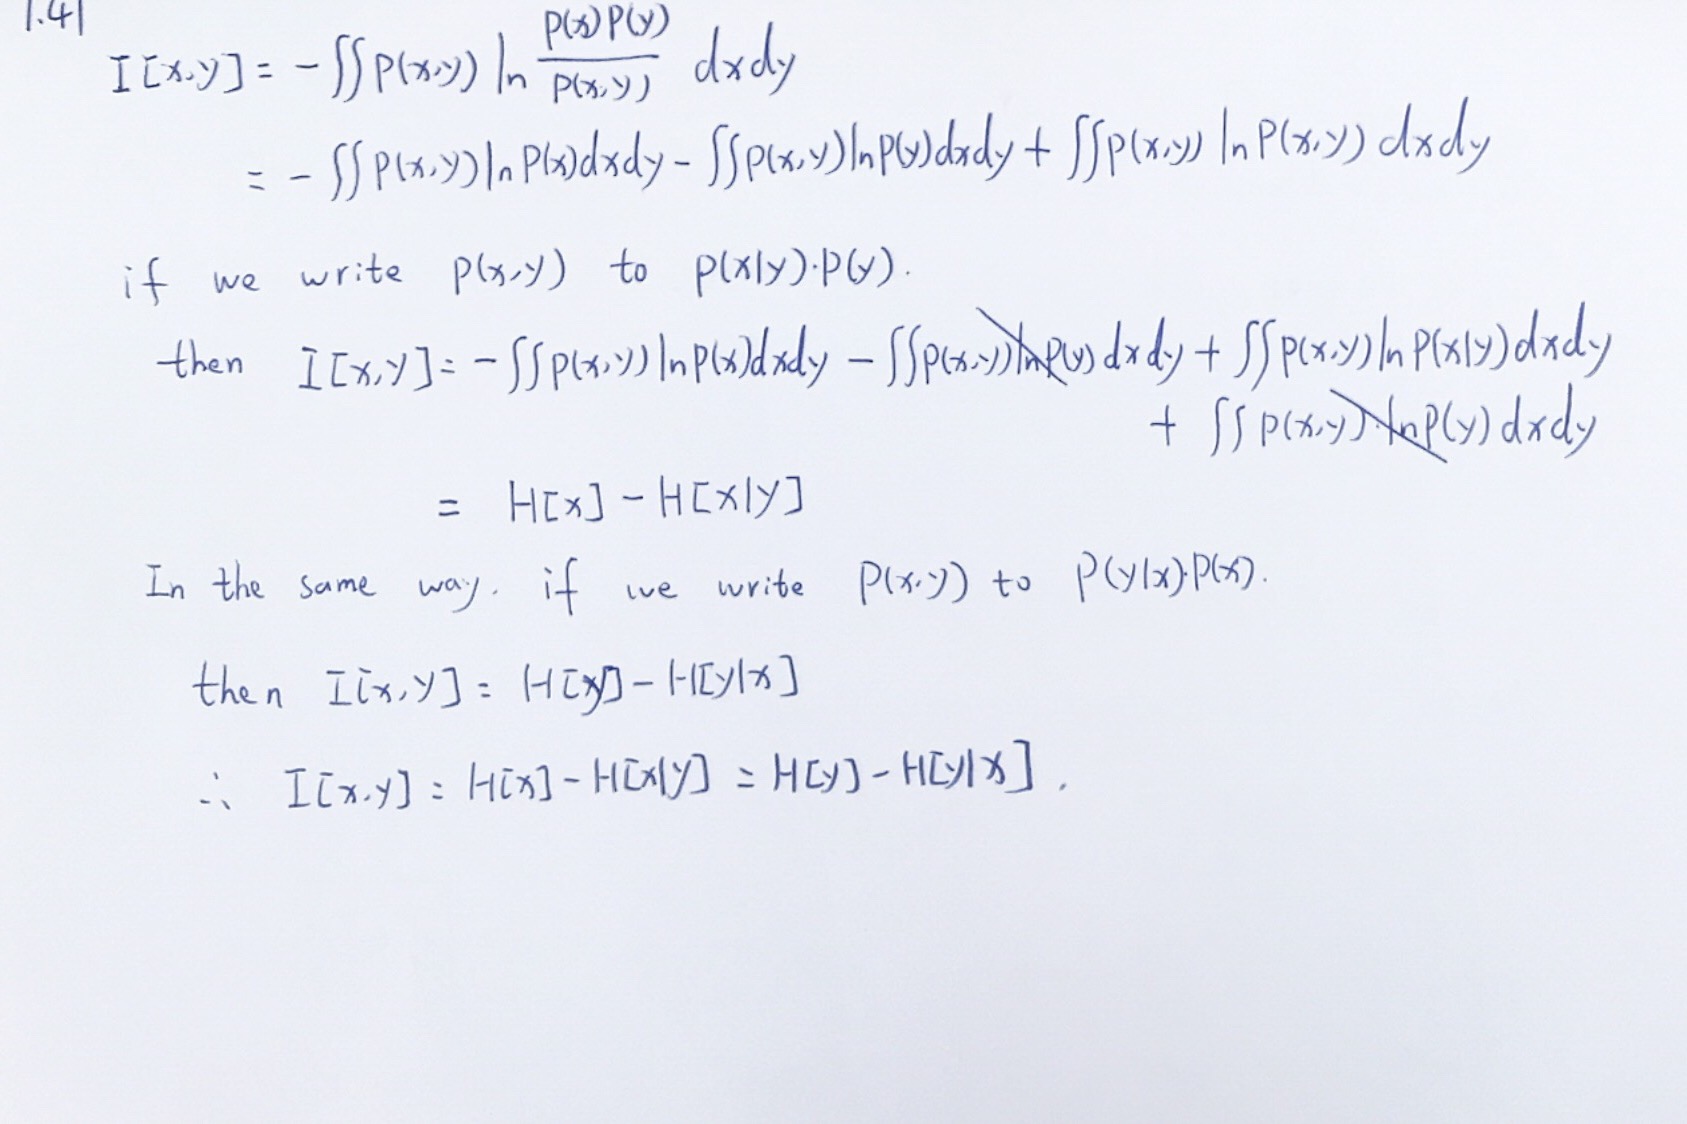 1.41
I[x,y] = - ∬ p(x,y) ln p(x)p(y)/p(x,y) dxdy
= - ∬ p(x,y) ln p(x)dxdy - ∬ p(x,y) ln p(y)dxdy + ∬ p(x,y) ln p(x,y) dxdy
if we write p(x,y) to p(x|y)·p(y).
then I[x,y] = - ∬ p(x,y) ln p(x)dxdy - ∬ p(x,y) ln p(y) dxdy + ∬ p(x,y) ln p(x|y) dxdy
+ ∬ p(x,y) ln p(y) dxdy
= H[x] - H[x|y]
In the same way. if we write p(x,y) to p(y|x)·p(x).
then I[x,y] = H[y] - H[y|x]
∴ I[x,y] = H[x] - H[x|y] = H[y] - H[y|x].